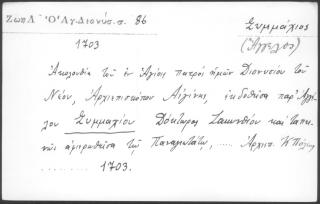 Ζωηλ. Ὁ Ἁγ. Διονύσ. σ. 86
Συμμάχιος
1703
(Ἄγγελος)
Ἀκολουθία τοῦ ἐν Ἁγίοις πατρός ἡμῶν Διονυσίου τοῦ
Νέου, Ἀρχιεπισκόπου Αἰγίνης, ἐκδοθεῖσα παρ' Ἀγγέ
λου Συμμαχίου Δόκτορος Ζακυνθίου καί ταπει
νῶς ἀφιερωθεῖσα τῷ Παναγιωτάτῳ, ..... Ἀρχιεπ. Κπόλεως
......... 1703.